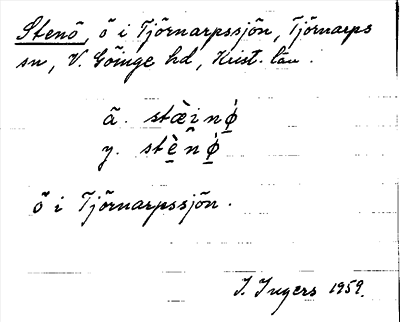 Stenö, ö i Tjörnarpssjön, Tjörnarps
sn, V. Göinge hd, Krist. län.
ä. stæ̀inǿ̣
y. stè̤n̂ǿ̣
ö i Tjörnarpssjön.
I. Ingers 1959.